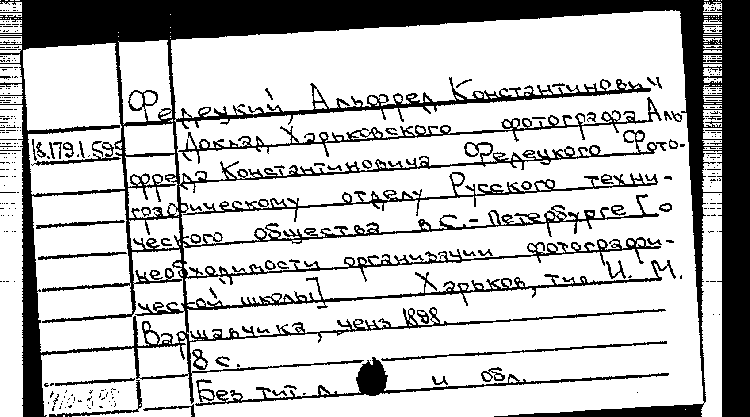 Федецкий, Альфред Константинович
18.179.1.595 Доклад Харьковского фотографа Аль-
фреда Константиновича Федецкого Фото-
графическому отделу Русского техни-
ческого общества в С.-Петербурге [о
необходимости организации фотографи-
ческой школы] Харьков, тип. И. М.
Варшавчика, ценз 1898.
8 с.
Без тит. л. и обл.